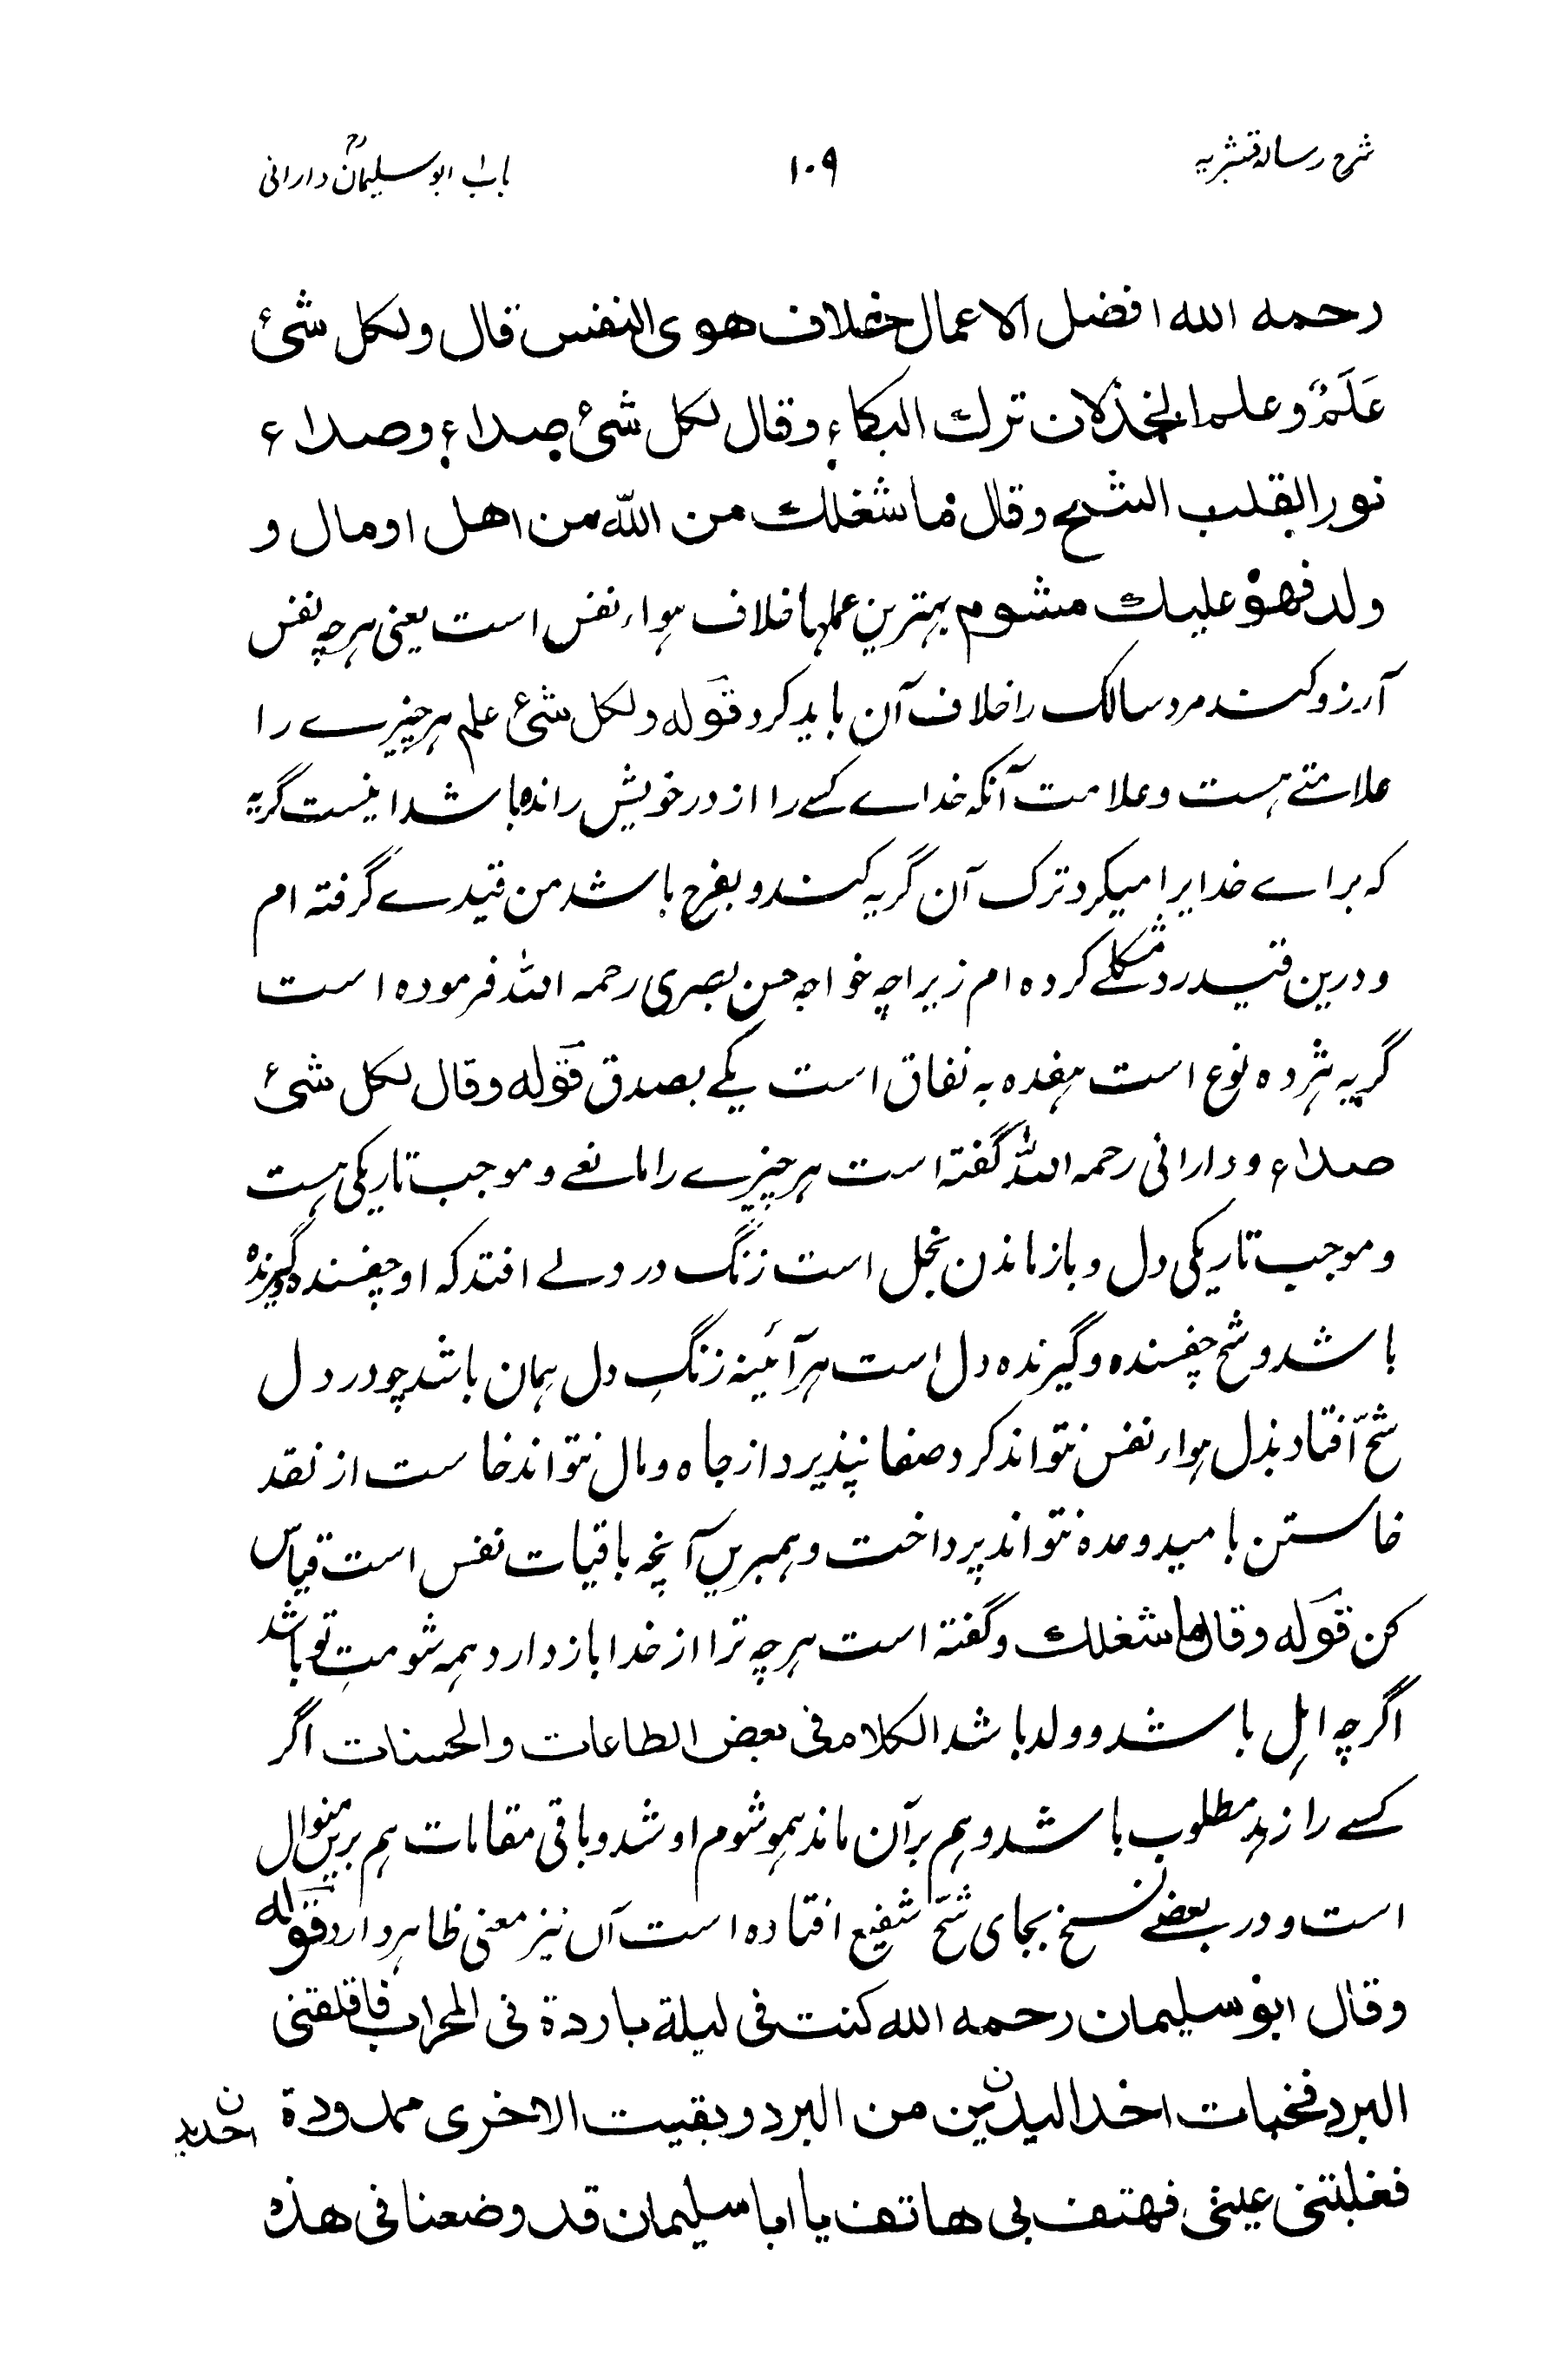 شرح رسالہ قشیریہ
۱۰۹
باب ابو سلیمانؒ دارانی
رحمه الله افضل الاعمال خلاف هوى النفس قال ولكل شئ
عَلَمٌ وعلم الخذلان ترك البكاء وقال لكل شئ صداء وصداء
نور القلب الشح وقال ما شغلك من الله من اهل او مال و
ولد فهو عليك مشوم بہترین عملہا خلاف ہواء نفس است یعنی ہرچہ نفس
آرزو کند مرد سالک را خلاف آن باید کرد قوله ولکل شئ علم ہر چیزے را
علامتے ہست و علامت آنکہ خداے کسے را از در خویش راندہ باشد اینست گریہ
کہ براے خدایرا میکرد ترک آن گریہ کند و بفرح باشد من قیدے گرفتہ ام
و درین قید رد مشکلے کردہ ام زیراچہ خواجہ حسن بصری رحمہ اللہ فرمودہ است
گریہ ہژدہ نوع است ہفدہ بہ نفاق است یکے بصدق قوله وقال لکل شئ
صداء و دارانی رحمہ اللہ گفتہ است ہر چیزے را مانعے و موجب تاریکی ہست
و موجب تاریکی دل و باز ماندن بخل است زنگ در دلے افتد کہ او چفسندہ و گیرندہ
باشد و شح چفسندہ و گیرندہ دل است ہر آئینہ زنگِ دل ہمان باشد چو در دل
شحّ افتاد بذل ہواء نفس نتواند کرد صفا نپذیرد از جاہ و مال نتواند خاست از نقد
خاستن با مید وعدہ نتواند پرداخت و ہمبریں آنچہ باقیات نفس است قیاس
کن قوله وقال ما شغلك و گفتہ است ہرچہ ترا از خدا باز دارد ہمہ شومتِ تو باشد
اگرچہ اہل باشد و ولد باشد الكلام فى بعض الطاعات والحسنات اگر
کسے را زہد مطلوب باشد و ہم بر آن ماند ہمو شوم او شد و باقی مقامات ہم برین منوال
است و در بعضے نسخ بجای شحّ شفیع افتادہ است آں نیز معنی ظاہر دارد قوله
وقال ابو سليمان رحمه الله كنت فى ليلة باردة فى المحراب فاقلقنى
البرد فخبات احد اليدين من البرد وبقيت الاخرى ممدودة
ن احدى
فغلبتنى عينى فهتف بى هاتف يا ابا سليمان قد وضعنا فى هذه